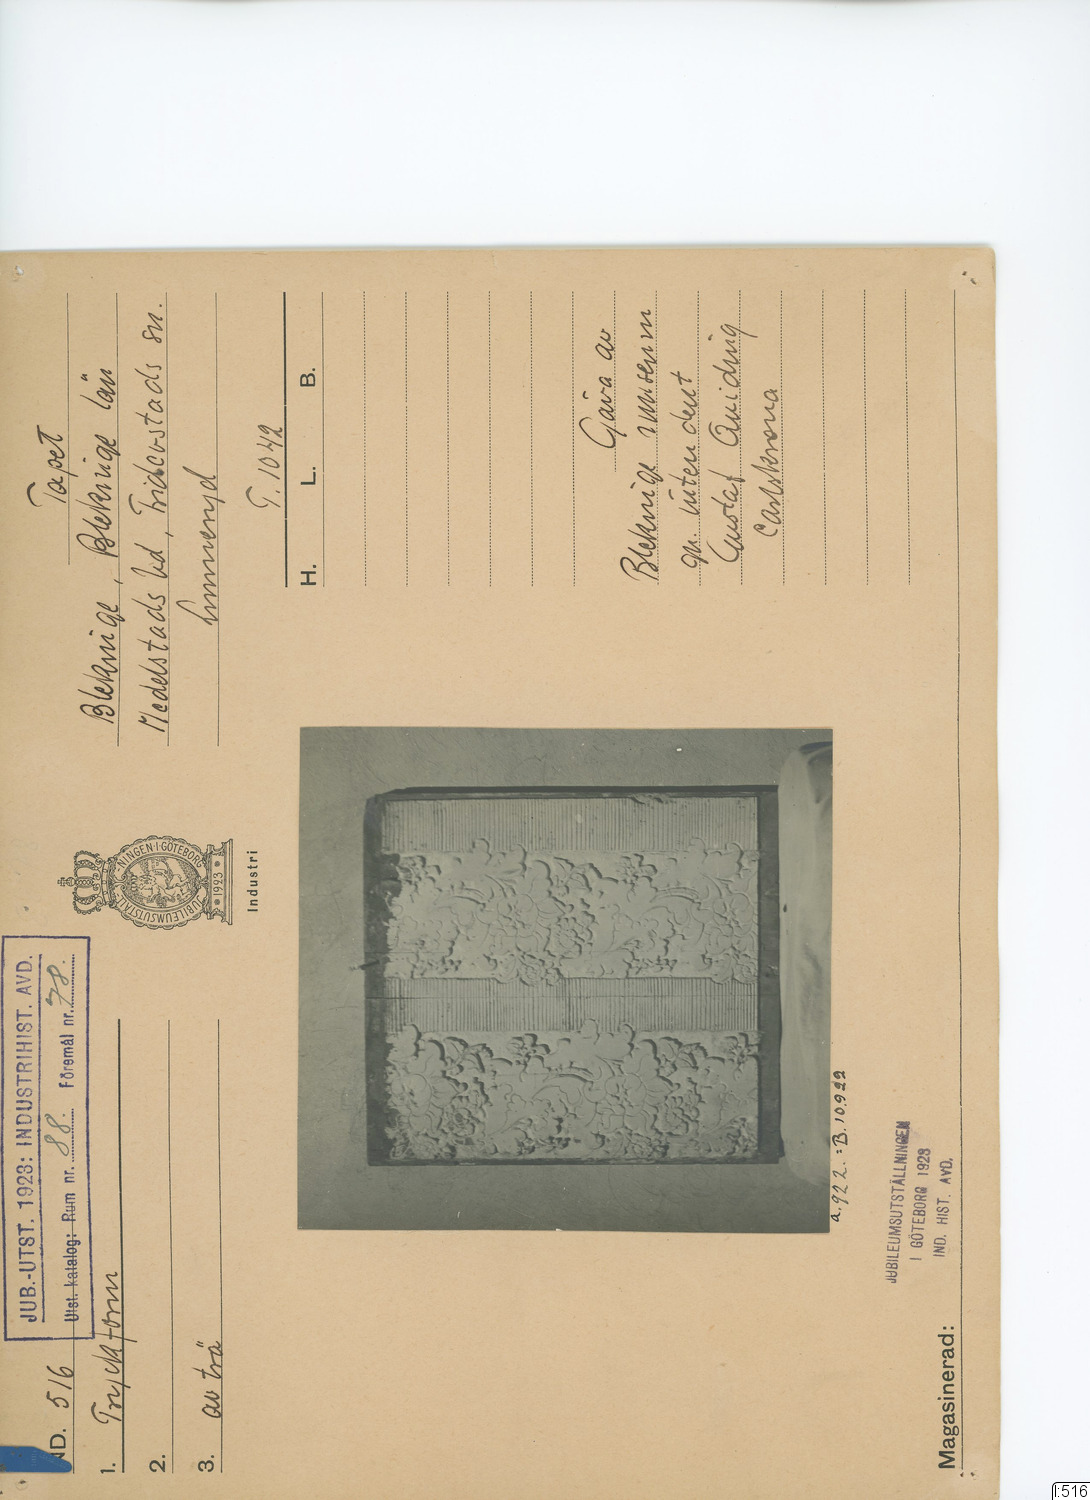 JUB.-UTST. 1923: INDUSTRIHIST. AVD.
Utst. katalog: Rum nr. 88. Föremål nr. 78.
ND. 516
1. Tryckform
2.
3. av trä
JUBILEUMSUTSTÄLLNINGEN·I·GÖTEBORG
1923
Industri
Tapet
Blekinge, Blekinge län
Medelstads hd, Fridlevstads sn.
T. 1042
H. L. B.
Gåva av
Blekinge museum
Gustaf
Carlskrona
a.922. =B.10.922
JUBILEUMSUTSTÄLLNINGEN
I GÖTEBORG 1923
IND. HIST. AVD.
Magasinerad:
I:516